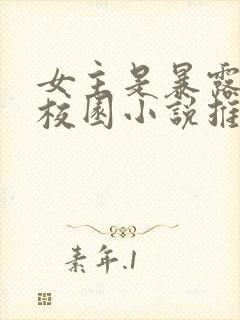 女主是暴露
校园小説推
素年.1